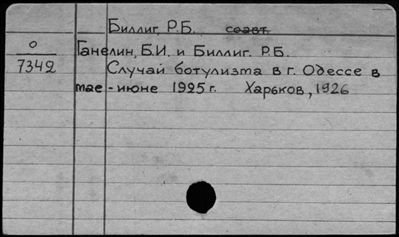 Биллиг, Р.Б. соавт.
0
7342
Ганелин, Б.И. и Биллиг. Р.Б.
Случай ботулизма в г. Одессе в
мае - июне 1925 г. Харьков, 1926